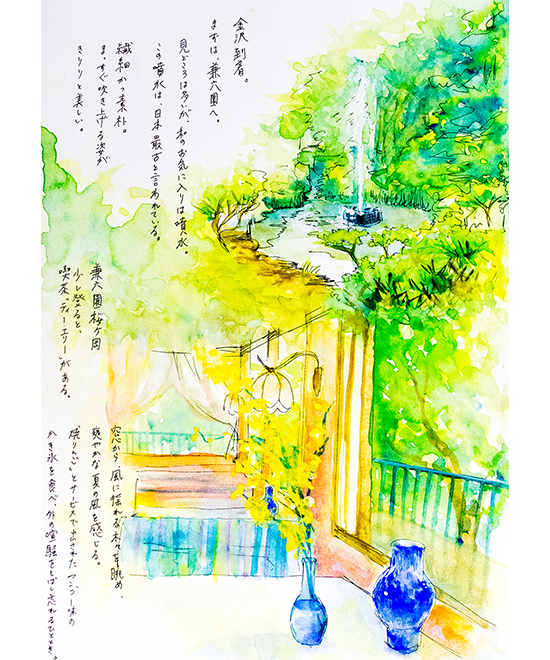 金沢到着。
まずは、兼六園へ。
見どころは多いが、私のお気に入りは噴水。
この噴水は、日本最古と言われている。
繊細かつ素朴。
まっすぐ吹き上げる姿が
きりりと美しい。
兼六園桜ヶ岡
少し登ると、
喫茶「ティーエリー」がある。
窓から風に揺れる木々を眺め、
爽やかな夏の風を感じる。
焼りんごとサービスで出されたマンゴー味の
かき氷を食べ、外の喧騒をしばし忘れるひととき。